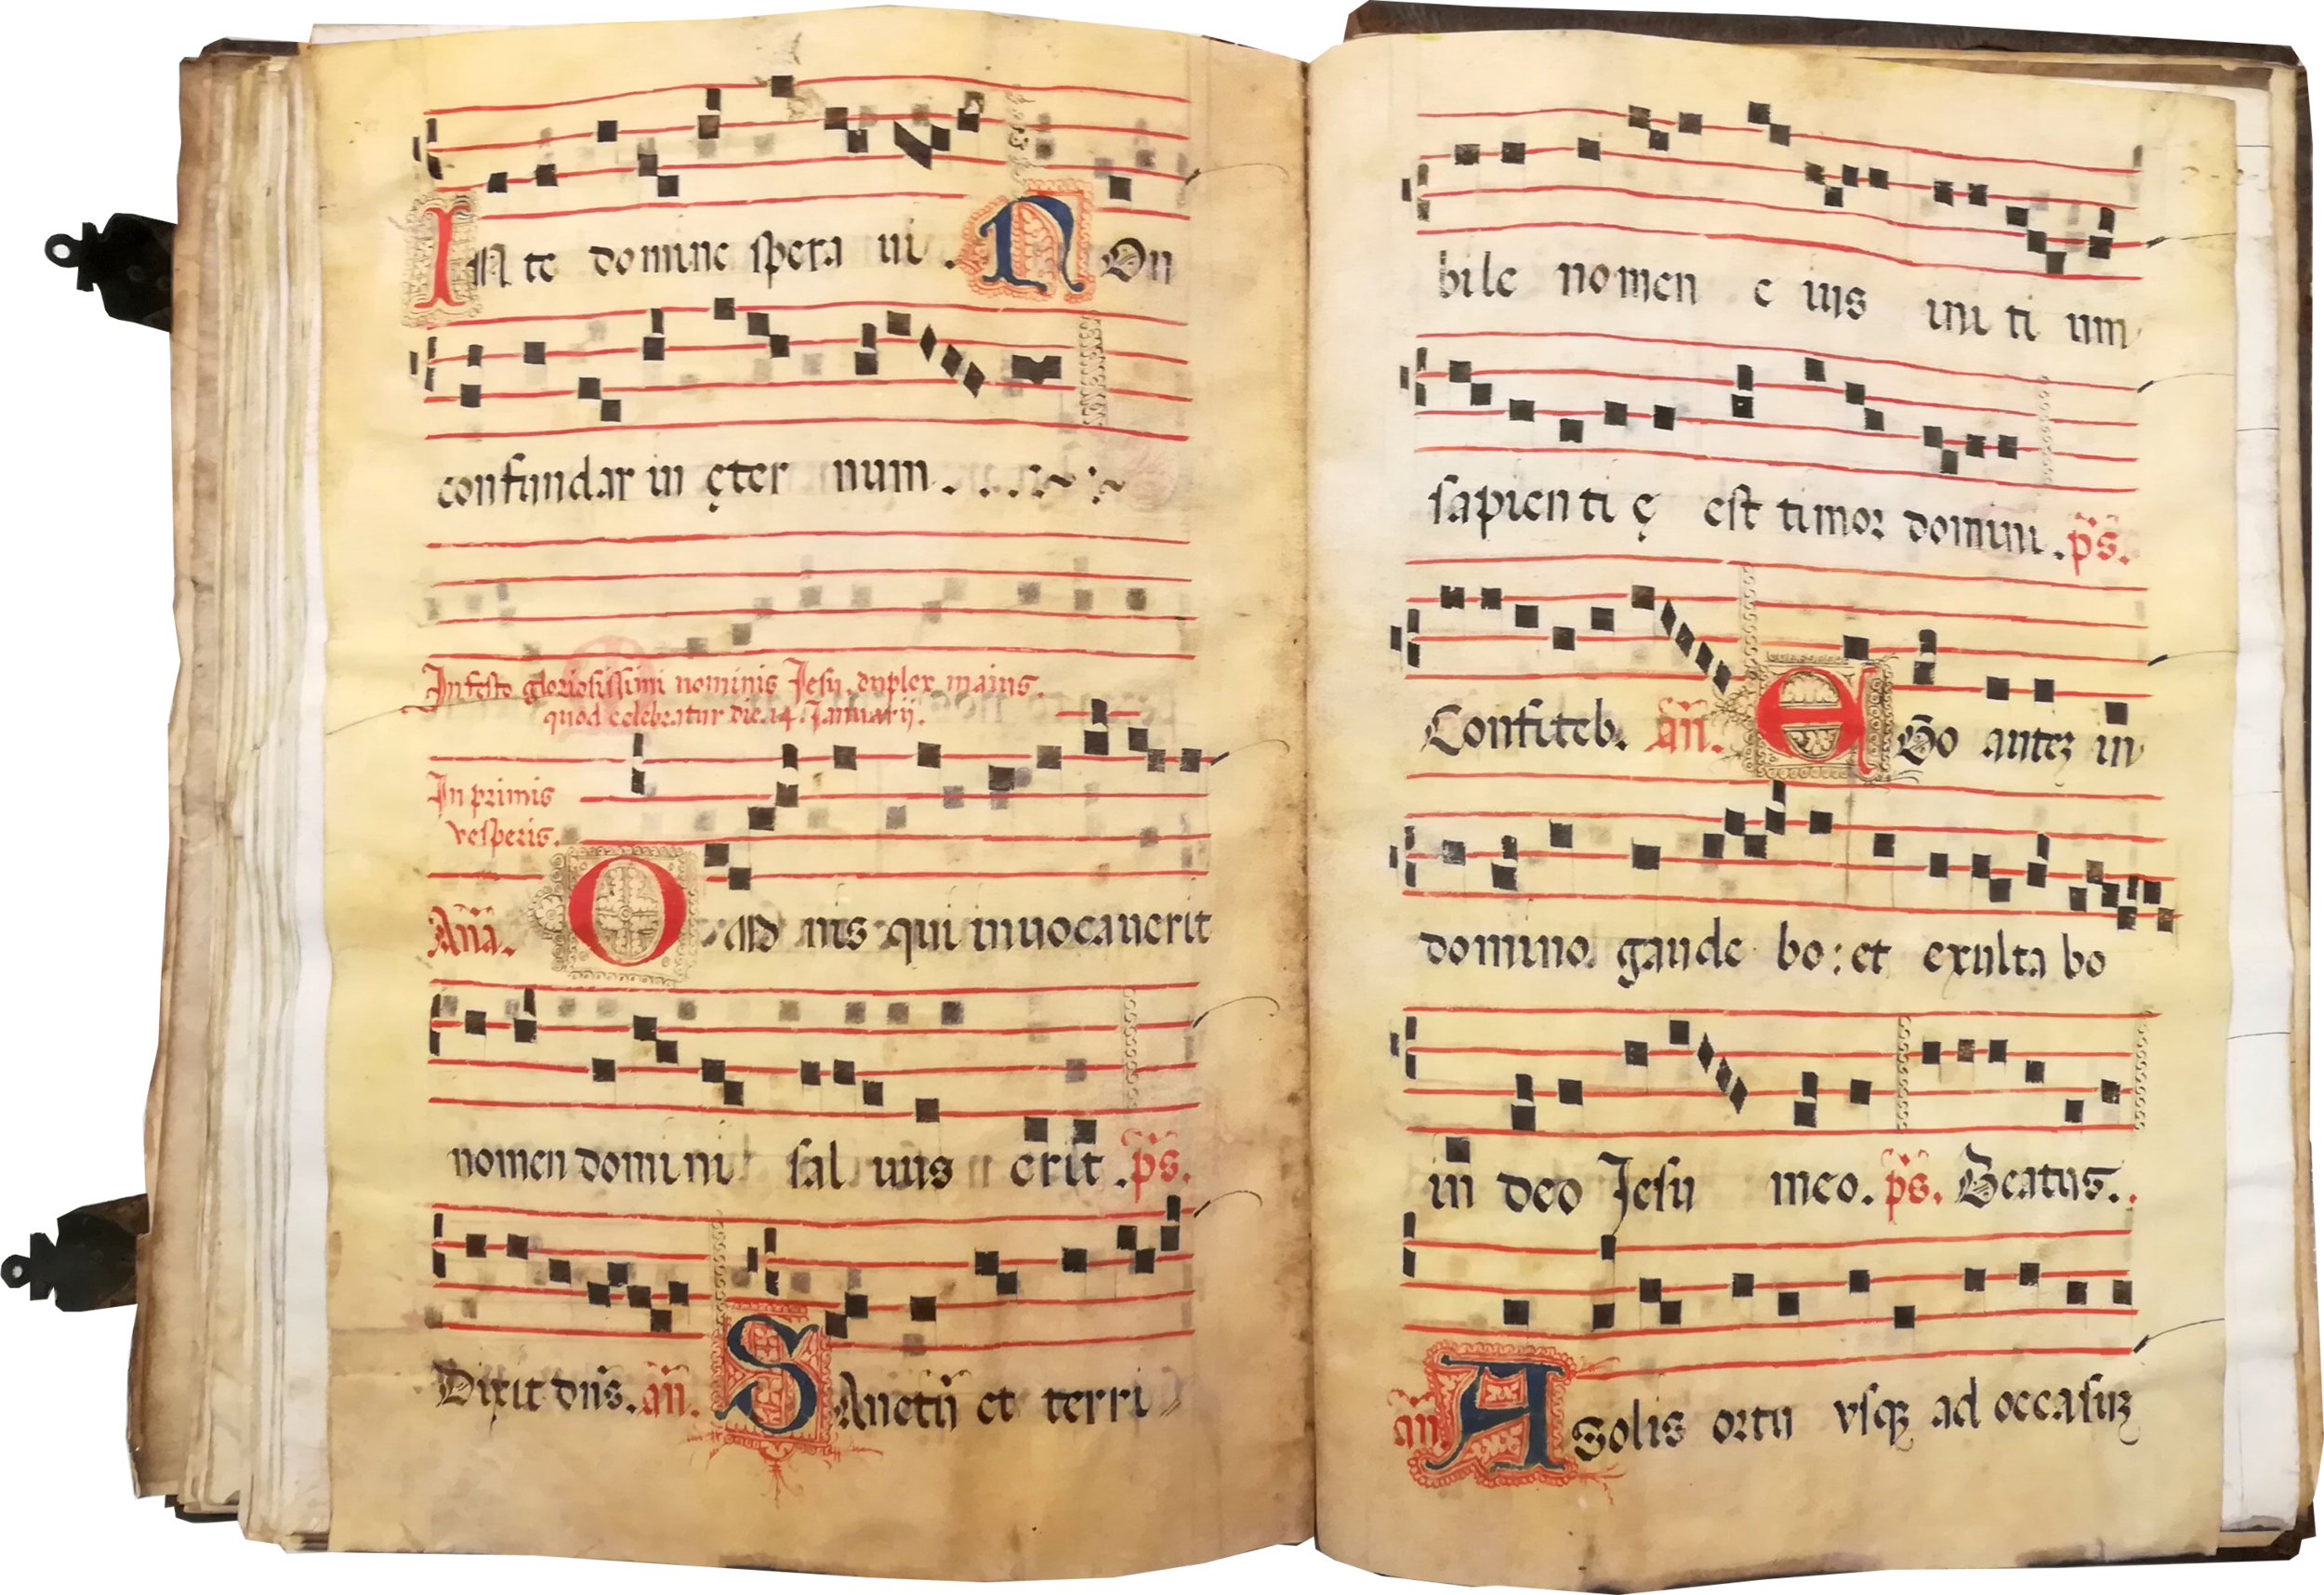 IN te domine spera ui . NOn
confundar in ęter num .
In festo gloriosissimi nominis Jesu. duplex maius.
quod celebratur die. 14. Januarij.
In primis
vesperis.
Aña. OMnis qui inuocauerit
nomen domini saluus erit . ps.
Dixit dñs. añ. SAnctũ et terri
bile nomen e ius ini ti um
sapienti ę est timor domini . ps.
Confiteb. añ. EGo autez in
domino gaude bo : et exulta bo
in deo Jesu meo . ps. Beatus.
añ A solis ortu vsqz ad occasuz